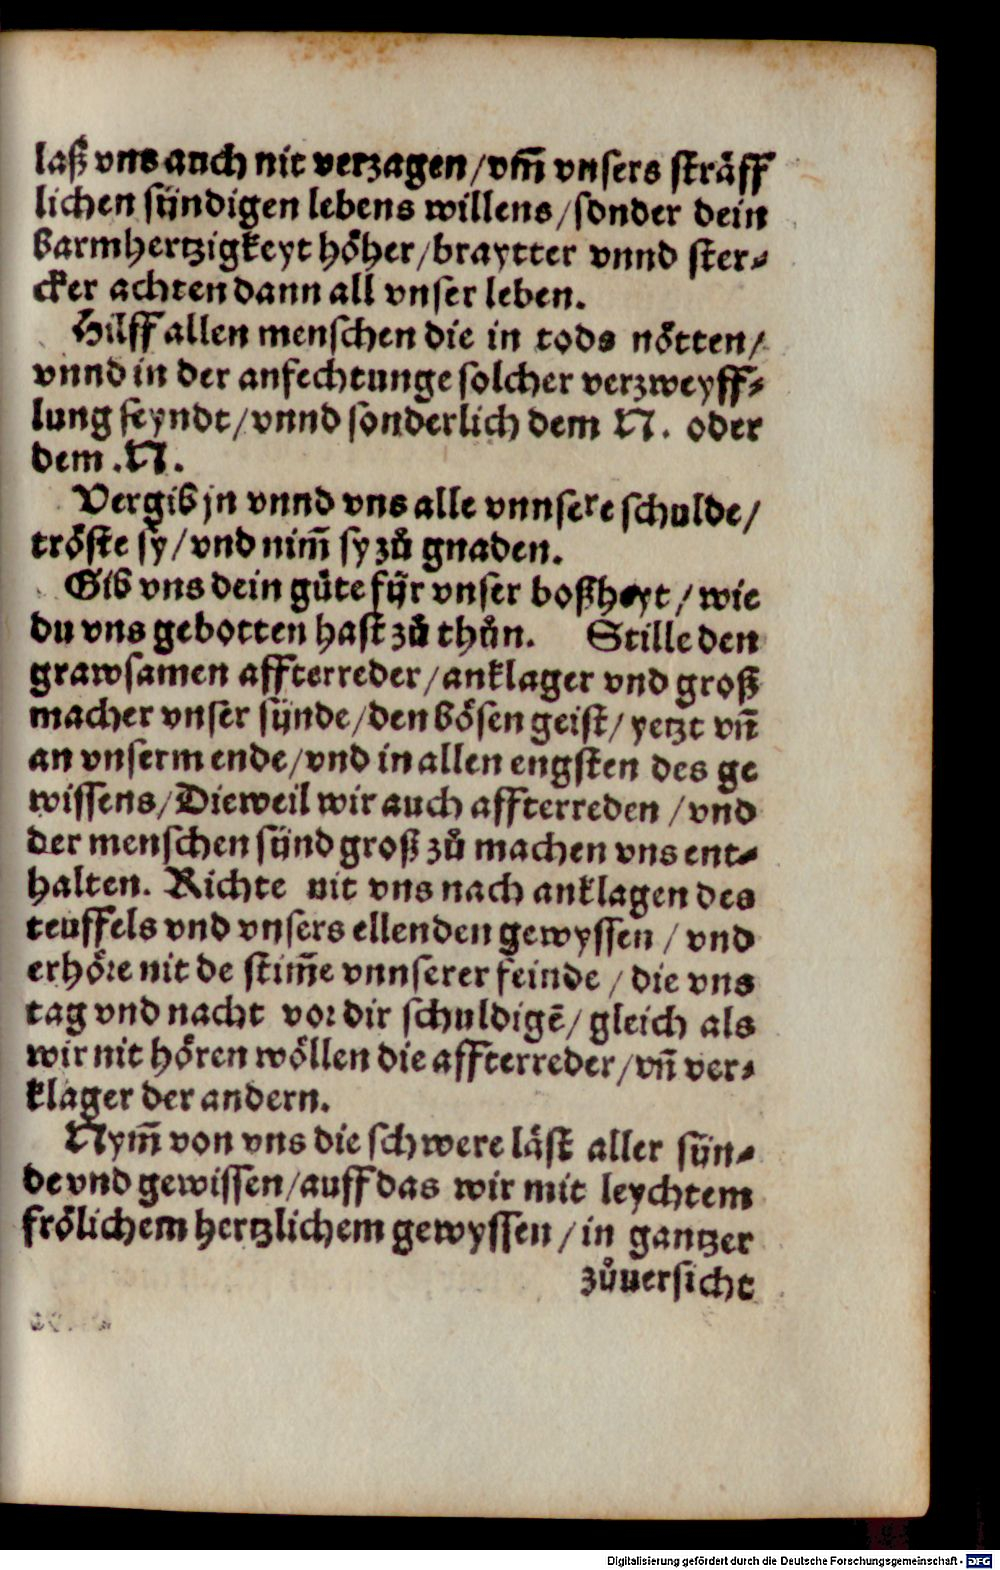 laß vns auch nit verzagen/vm̃ vnsers sträff
lichen sündigen lebens willens/sonder dein
barmhertzigkeyt höher/braytter vnnd ster⸗
cker achten dann all vnser leben.
Hilff allen menschen die in tods nötten/
vnnd in der anfechtunge solcher verzweyff⸗
lung seyndt/vnnd sonderlich dem N. oder
dem .N.
Vergib jn vnnd vns alle vnnsere schulde/
tröste sy/vnd nim̃ sy zů gnaden.
Gib vns dein güte für vnser boßheyt/wie
du vns gebotten hast zů thůn. Stille den
grawsamen affterreder/anklager vnd groß
macher vnser sünde/den bösen geist/yetzt vñ
an vnserm ende/vnd in allen engsten des ge
wissens/Dieweil wir auch affterreden/vnd
der menschen sünd groß zů machen vns ent⸗
halten. Richte nit vns nach anklagen des
teuffels vnd vnsers ellenden gewyssen/vnd
erhöre nit de stim̃e vnnserer feinde/die vns
tag vnd nacht vor dir schuldigẽ/gleich als
wir nit hören wöllen die affterreder/vñ ver⸗
klager der andern.
Nym̃ von vns die schwere läst aller sün⸗
de vnd gewissen/auff das wir mit leychtem
frölichem hertzlichem gewyssen/in gantzer
zůuersicht
Digitalisierung gefördert durch die Deutsche Forschungsgemeinschaft - DFG